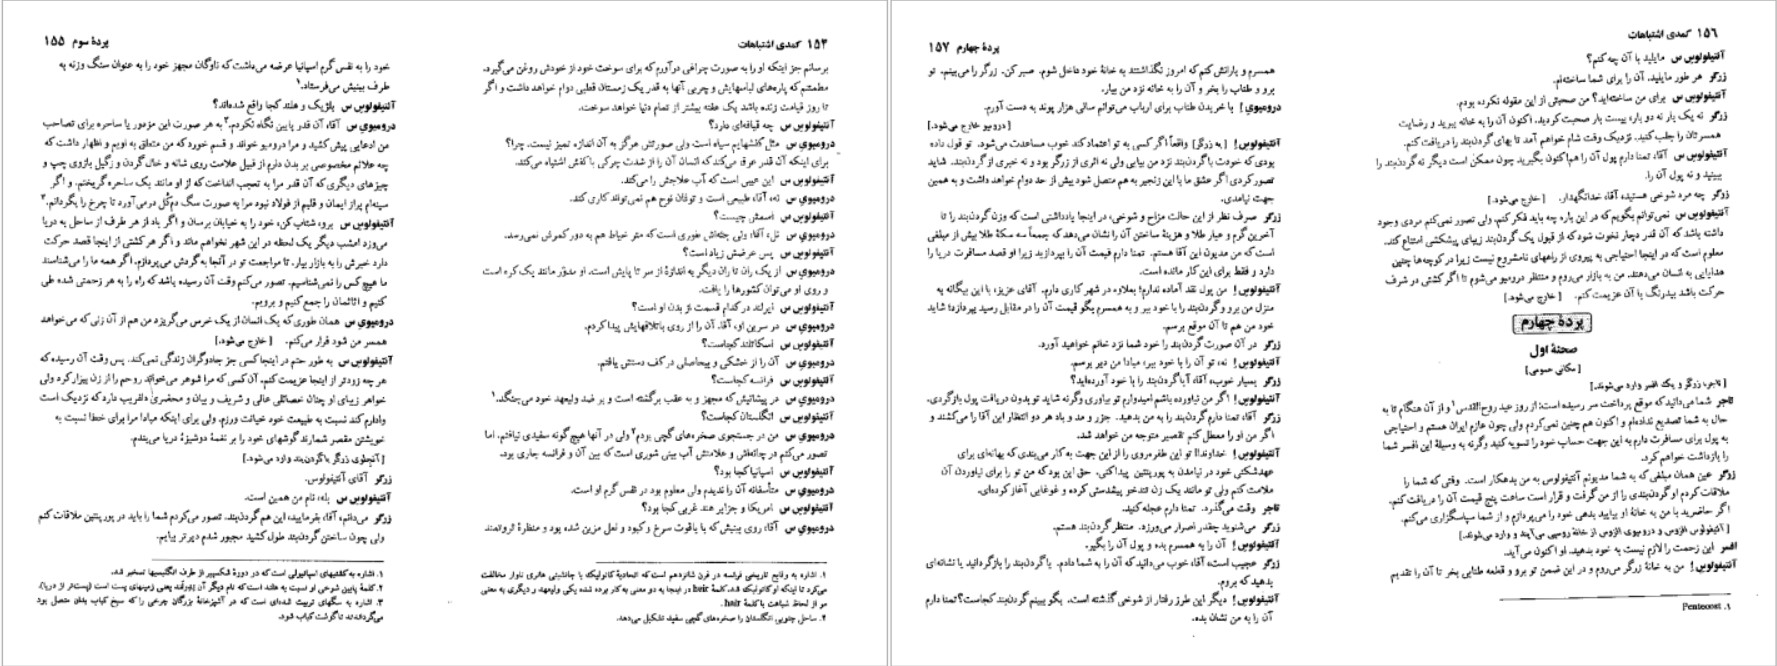 ۱۵۴ کمدی اشتباهات
برسانم جز اینکه او را به صورت چراغی درآورم که برای سوخت خود از خودش روغن می‌گیرد.
مطمئنم که پاره‌های لباسهایش و چربی آنها به قدر یک زمستان قطبی دوام خواهد داشت و اگر
تا روز قیامت زنده باشد یک هفته بیشتر از تمام دنیا خواهد سوخت.
آنتیفولوس س چه قیافه‌ای دارد؟
درومیوی س مثل کفشهایم سیاه است ولی صورتش هرگز به آن اندازه تمیز نیست. چرا؟
برای اینکه آن قدر عرق می‌کند که انسان آن را از شدت چرکی با کفش اشتباه می‌کند.
آنتیفولوس س این عیبی است که آب علاجش را می‌کند.
درومیوی س نه، آقا، طبیعی است و توفان نوح هم نمی‌تواند کاری کند.
آنتیفولوس س اسمش چیست؟
درومیوی س نل، آقا، ولی جثه‌اش طوری است که متر خیاط هم به دور کمرش نمی‌رسد.
آنتیفولوس س پس عرضش زیاد است؟
درومیوی س از یک ران تا ران دیگر به اندازهٔ از سر تا پایش است. او مدوّر مانند یک کره است
و روی او می‌توان کشورها را یافت.
آنتیفولوس س ایرلند در کدام قسمت از بدن او است؟
درومیوی س در سرین او، آقا. آن را از روی باتلاقهایش پیدا کردم.
آنتیفولوس س اسکاتلند کجاست؟
درومیوی س آن را از خشکی و بیحاصلی در کف دستش یافتم.
آنتیفولوس س فرانسه کجاست؟
درومیوی س در پیشانیش که مجهز و به عقب برگشته است و بر ضد ولیعهد خود می‌جنگد.۱
آنتیفولوس س انگلستان کجاست؟
درومیوی س من در جستجوی صخره‌های گچی بودم۲ ولی در آنها هیچ گونه سفیدی نیافتم. اما
تصور می‌کنم در چانه‌اش و علامتش آب بینی شوری است که بین آن و فرانسه جاری بود.
آنتیفولوس س اسپانیا کجا بود؟
درومیوی س متأسفانه آن را ندیدم ولی معلوم بود در نفس گرم او است.
آنتیفولوس س امریکا و جزایر هند غربی کجا بود؟
درومیوی س آقا، روی بینیش که با یاقوت سرخ و کبود و لعل مزین شده بود و منظرهٔ ثروتمند
۱. اشاره به وقایع تاریخی فرانسه در قرن شانزدهم است که اتحادیهٔ کاتولیک با جانشینی هانری ناوار مخالفت
می‌کرد تا اینکه او کاتولیک شد. کلمهٔ heir در اینجا به دو معنی به کار برده شده یکی ولیعهد و دیگری به معنی
مو از لحاظ شباهت با کلمهٔ hair.
۲. ساحل جنوبی انگلستان را صخره‌های گچی سفید تشکیل می‌دهد.
پردهٔ سوم ۱۵۵
خود را به نفس گرم اسپانیا عرضه می‌داشت که ناوگان مجهز خود را به عنوان سنگ وزنه به
طرف بینیش می‌فرستاد.۱
آنتیفولوس س بلژیک و هلند کجا واقع شده‌اند؟
درومیوی س آقا، آن قدر پایین نگاه نکردم.۲ به هر صورت این مزدور یا ساحره برای تصاحب
من ادعایی پیش کشید و مرا درومیو خواند و قسم خورد که من متعلق به اویم و اظهار داشت که
چه علائم مخصوصی بر بدن دارم از قبیل علامت روی شانه و خال گردن و زگیل بازوی چپ و
چیزهای دیگری که آن قدر مرا به تعجب انداخت که از او مانند یک ساحره گریختم. و اگر
سینه‌ام پراز ایمان و قلبم از فولاد نبود مرا به صورت سگ دم‌کل درمی‌آورد تا چرخ را بگردانم.۳
آنتیفولوس س برو، شتاب کن، خود را به خیابان برسان و اگر باد از هر طرف از ساحل به دریا
می‌وزد امشب دیگر یک لحظه در این شهر نخواهم ماند و اگر هر کشتی از اینجا قصد حرکت
دارد خبرش را به بازار بیار. تا مراجعت تو در آنجا به گردش می‌پردازم. اگر همه ما را می‌شناسند
ما هیچ کس را نمی‌شناسیم. تصور می‌کنم وقت آن رسیده باشد که راه را به هر زحمتی شده طی
کنیم و اثاثمان را جمع کنیم و برویم.
درومیوی س همان طوری که یک انسان از یک خرس می‌گریزد من هم از آن زنی که می‌خواهد
همسر من شود فرار می‌کنم. [خارج می‌شود.]
آنتیفولوس س به طور حتم در اینجا کسی جز جادوگران زندگی نمی‌کند. پس وقت آن رسیده که
هر چه زودتر از اینجا عزیمت کنم. آن کسی که مرا شوهر می‌خواند روحم را از زن بیزار کرد ولی
خواهر زیبای او چنان خصائلی عالی و شریف و بیان و محضری دلفریب دارد که نزدیک است
وادارم کند نسبت به طبیعت خود خیانت ورزم. ولی برای اینکه مبادا مرا برای خطا نسبت به
خویشتن مقصر شمارند گوشهای خود را بر نغمهٔ دوشیزهٔ دریا می‌بندم.
[آنجلوی زرگر با گردن‌بند وارد می‌شود.]
زرگر آقای آنتیفولوس.
آنتیفولوس س بله، نام من همین است.
زرگر می‌دانم، آقا، بفرمایید، این هم گردن‌بند. تصور می‌کردم شما را باید در پورپنتین ملاقات کنم
ولی چون ساختن گردن‌بند طول کشید مجبور شدم دیرتر بیایم.
۱. اشاره به کشتیهای اسپانیولی است که در دورهٔ شکسپیر از طرف انگلیسیها تسخیر شد.
۲. کلمهٔ پایین شوخی او نسبت به هلند است که نام دیگر آن نِدِرلند یعنی زمینهای پست است (پست‌تر از دریا).
۳. اشاره به سگهای تربیت شده‌ای است که در آشپزخانهٔ بزرگان چرخی را که سیخ کباب بدان متصل بود
می‌گرداندند تا گوشت کباب شود.
۱۵۶ کمدی اشتباهات
آنتیفولوس س مایلید با آن چه کنم؟
زرگر هر طور مایلید. آن را برای شما ساخته‌ام.
آنتیفولوس س برای من ساخته‌اید؟ من صحبتی از این مقوله نکرده بودم.
زرگر نه یک بار نه دو بار، بیست بار صحبت کردید. اکنون آن را به خانه ببرید و رضایت
همسرتان را جلب کنید. نزدیک وقت شام خواهم آمد تا بهای گردن‌بند را دریافت کنم.
آنتیفولوس س آقا، تمنا دارم پول آن را هم‌اکنون بگیرید چون ممکن است دیگر نه گردن‌بند را
ببینید و نه پول آن را.
زرگر چه مرد شوخی هستید، آقا، خدانگهدار. [خارج می‌شود.]
آنتیفولوس س نمی‌توانم بگویم که در این باره چه باید فکر کنم، ولی تصور نمی‌کنم مردی وجود
داشته باشد که آن قدر دچار نخوت شود که از قبول یک گردن‌بند زیبای پیشکشی امتناع کند.
معلوم است که در اینجا احتیاجی به پیروی از راههای نامشروع نیست زیرا در کوچه‌ها چنین
هدایایی به انسان می‌دهند. من به بازار می‌روم و منتظر درومیو می‌شوم تا اگر کشتی در شرف
حرکت باشد بیدرنگ با آن عزیمت کنم. [خارج می‌شود.]
پردهٔ چهارم
صحنهٔ اول
[مکانی عمومی]
[تاجر، زرگر و یک افسر وارد می‌شوند.]
تاجر شما می‌دانید که موقع پرداخت سر رسیده است: از روز عید روح‌القدس۱ و از آن هنگام تا به
حال به شما تصدیع نداده‌ام و اکنون هم چنین نمی‌کردم ولی چون عازم ایران هستم و احتیاجی
به پول برای مسافرت دارم به این جهت حساب خود را تسویه کنید وگرنه به وسیلهٔ این افسر شما
را بازداشت خواهم کرد.
زرگر عین همان مبلغی که به شما مدیونم آنتیفولوس به من بدهکار است. وقتی که شما را
ملاقات کردم او گردن‌بندی را از من گرفت و قرار است ساعت پنج قیمت آن را دریافت کنم.
اگر حاضرید با من به خانهٔ او بیایید بدهی خود را می‌پردازم و از شما سپاسگزاری می‌کنم.
[آنتیفولوس افزوس و درومیوی افزوس از خانهٔ روسپی می‌آیند و وارد می‌شوند.]
افسر این زحمت را لازم نیست به خود بدهید. او اکنون می‌آید.
آنتیفولوس ا من به خانهٔ زرگر می‌روم و در این ضمن تو برو و قطعه طنابی بخر تا آن را تقدیم
۱. Pentecost
پردهٔ چهارم ۱۵۷
همسرم و یارانش کنم که امروز نگذاشتند به خانهٔ خود داخل شوم. صبر کن. زرگر را می‌بینم. تو
برو و طناب را بخر و آن را به خانه نزد من بیار.
درومیوی ا با خریدن طناب برای ارباب می‌توانم سالی هزار پوند به دست آورم.
[درومیو خارج می‌شود.]
آنتیفولوس ا [به زرگر] واقعاً اگر کسی به تو اعتماد کند خوب مساعدت می‌شود. تو قول داده
بودی که خودت با گردن‌بند نزد من بیایی ولی نه اثری از زرگر بود و نه خبری از گردن‌بند. شاید
تصور کردی اگر عشق ما با این زنجیر به هم متصل شود بیش از حد دوام خواهد داشت و به همین
جهت نیامدی.
زرگر صرف نظر از این حالت مزاح و شوخی، در اینجا یادداشتی است که وزن گردن‌بند را تا
آخرین گرم و عیار طلا و هزینهٔ ساختن آن را نشان می‌دهد که جمعاً سه سکهٔ طلا بیش از مبلغی
است که من مدیون این آقا هستم. تمنا دارم قیمت آن را بپردازید زیرا او قصد مسافرت دریا را
دارد و فقط برای این کار مانده است.
آنتیفولوس ا من پول نقد آماده ندارم؛ بعلاوه در شهر کاری دارم. آقای عزیز، با این بیگانه به
منزل من برو و گردن‌بند را با خود ببر و به همسرم بگو قیمت آن را در مقابل رسید بپردازد؛ شاید
خود من هم تا آن موقع برسم.
زرگر در آن صورت گردن‌بند را خود شما نزد خانم خواهید آورد.
آنتیفولوس ا نه، تو آن را با خود ببر، مبادا من دیر برسم.
زرگر بسیار خوب، آقا، آیا گردن‌بند را با خود آورده‌اید؟
آنتیفولوس ا اگر من نیاورده باشم امیدوارم تو بیاوری وگرنه شاید تو بدون دریافت پول بازگردی.
زرگر آقا، تمنا دارم گردن‌بند را به من بدهید. جزر و مد و باد هر دو انتظار این آقا را می‌کشند و
اگر من او را معطل کنم تقصیر متوجه من خواهد شد.
آنتیفولوس ا خداوندا! تو این طفره‌روی را از این جهت به کار می‌بندی که بهانه‌ای برای
عهدشکنی خود در نیامدن به پورپنتین پیدا کنی. حق این بود که من تو را برای نیاوردن آن
ملامت کنم ولی تو مانند یک زن تندخو پیشدستی کرده و غوغایی آغاز کرده‌ای.
تاجر وقت می‌گذرد. تمنا دارم عجله کنید.
زرگر می‌شنوید چقدر اصرار می‌ورزد. منتظر گردن‌بند هستم.
آنتیفولوس ا آن را به همسرم بده و پول آن را بگیر.
زرگر عجیب است، آقا، خوب می‌دانید که آن را به شما دادم. یا گردن‌بند را بازگردانید یا نشانه‌ای
بدهید که بروم.
آنتیفولوس ا دیگر این طرز رفتار از شوخی گذشته است. بگو ببینم گردن‌بند کجاست؟ تمنا دارم
آن را به من نشان بده.